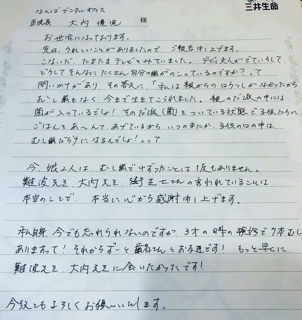 三井生命
なんばデンタルオフィス
医院長 大内 様
お世話になっております。
先日、うれしいことがありましたので、ご報告申し上げます。
こないだ、たまたまテレビをみていました。
どうしてそんなにたくさん自分の歯がのこっているのですか？って
問いかけがあり、その答えに、「私は親からの
むし歯もなく今まで生きてこられました。親のだ液の中には
菌が入っているでしょ！そのだ液（菌）をついている状態で子供たちの
ごはんをあげているから いつのまにか、子供の口の中は、
むし歯だらけになるんでしょ！って
今、娘2人は、むし歯で
難波先生、大内先生、衛生士さんの言われていることは、
本当のことで、本当に心から感謝申し上げます。
私自身、今でも忘れられないのですが、3才の時の検診で7本むし歯
ありますって！それからずーと歯医者さんとお友達です！もっと早くに
難波先生、大内先生に会いたかったです！
今後ともよろしくお願いいたします。